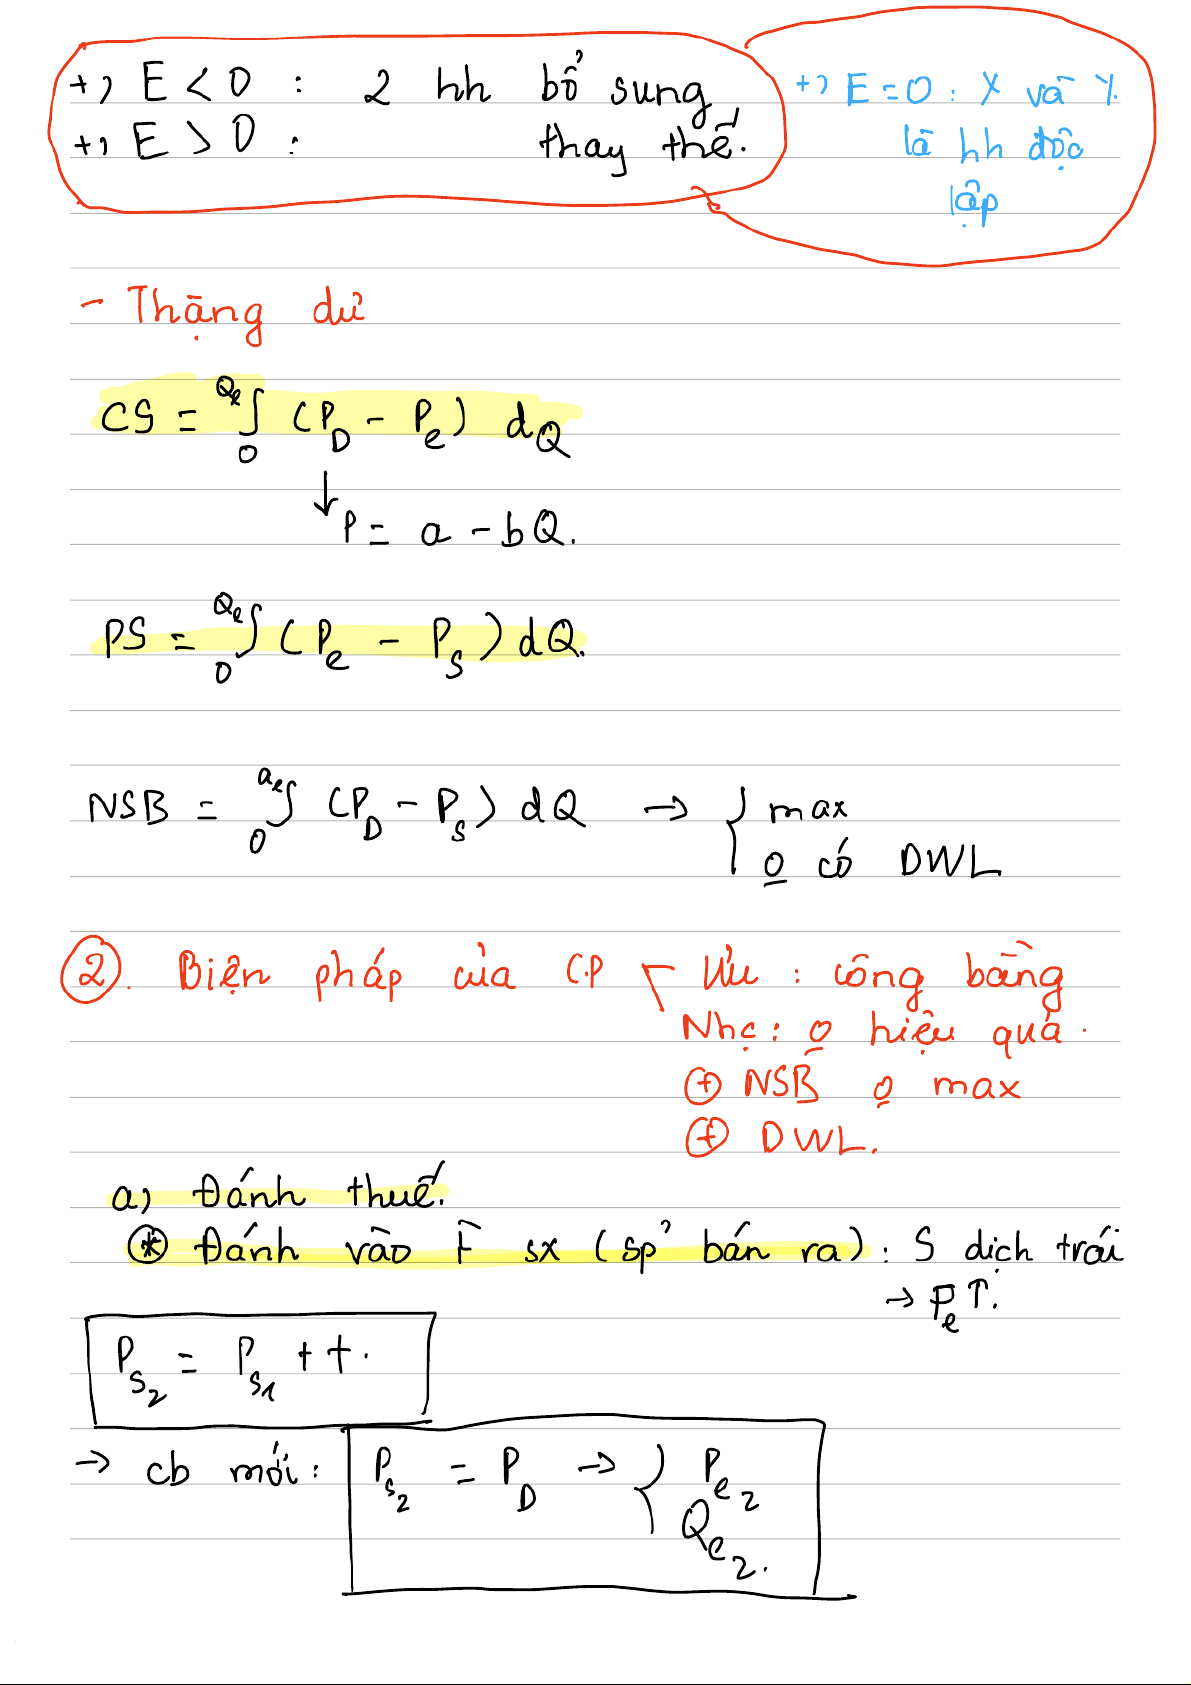 +) E < 0 : 2 hh bổ sung
+) E > 0 : thay thế.
+) E = 0 : X và Y.
là hh độc
lập
- Thặng dư
CS = ∫₀^Qe (P_D - P_e) dQ
↓ P = a - bQ.
PS = ∫₀^Qe (P_e - P_s) dQ.
NSB = ∫₀^Qe (P_D - P_s) dQ → { max
o có DWL
②. Biện pháp của CP Ưu : công bằng
Nhc : o hiệu quả.
⊕ NSB o max
⊕ DWL.
a) Đánh thuế.
⊛ Đánh vào F sx (sp bán ra) : S dịch trái
→ P_e ↑.
P_s2 = P_s1 + t.
→ cb mới : P_s2 = P_D → { P_e2
Q_e2.